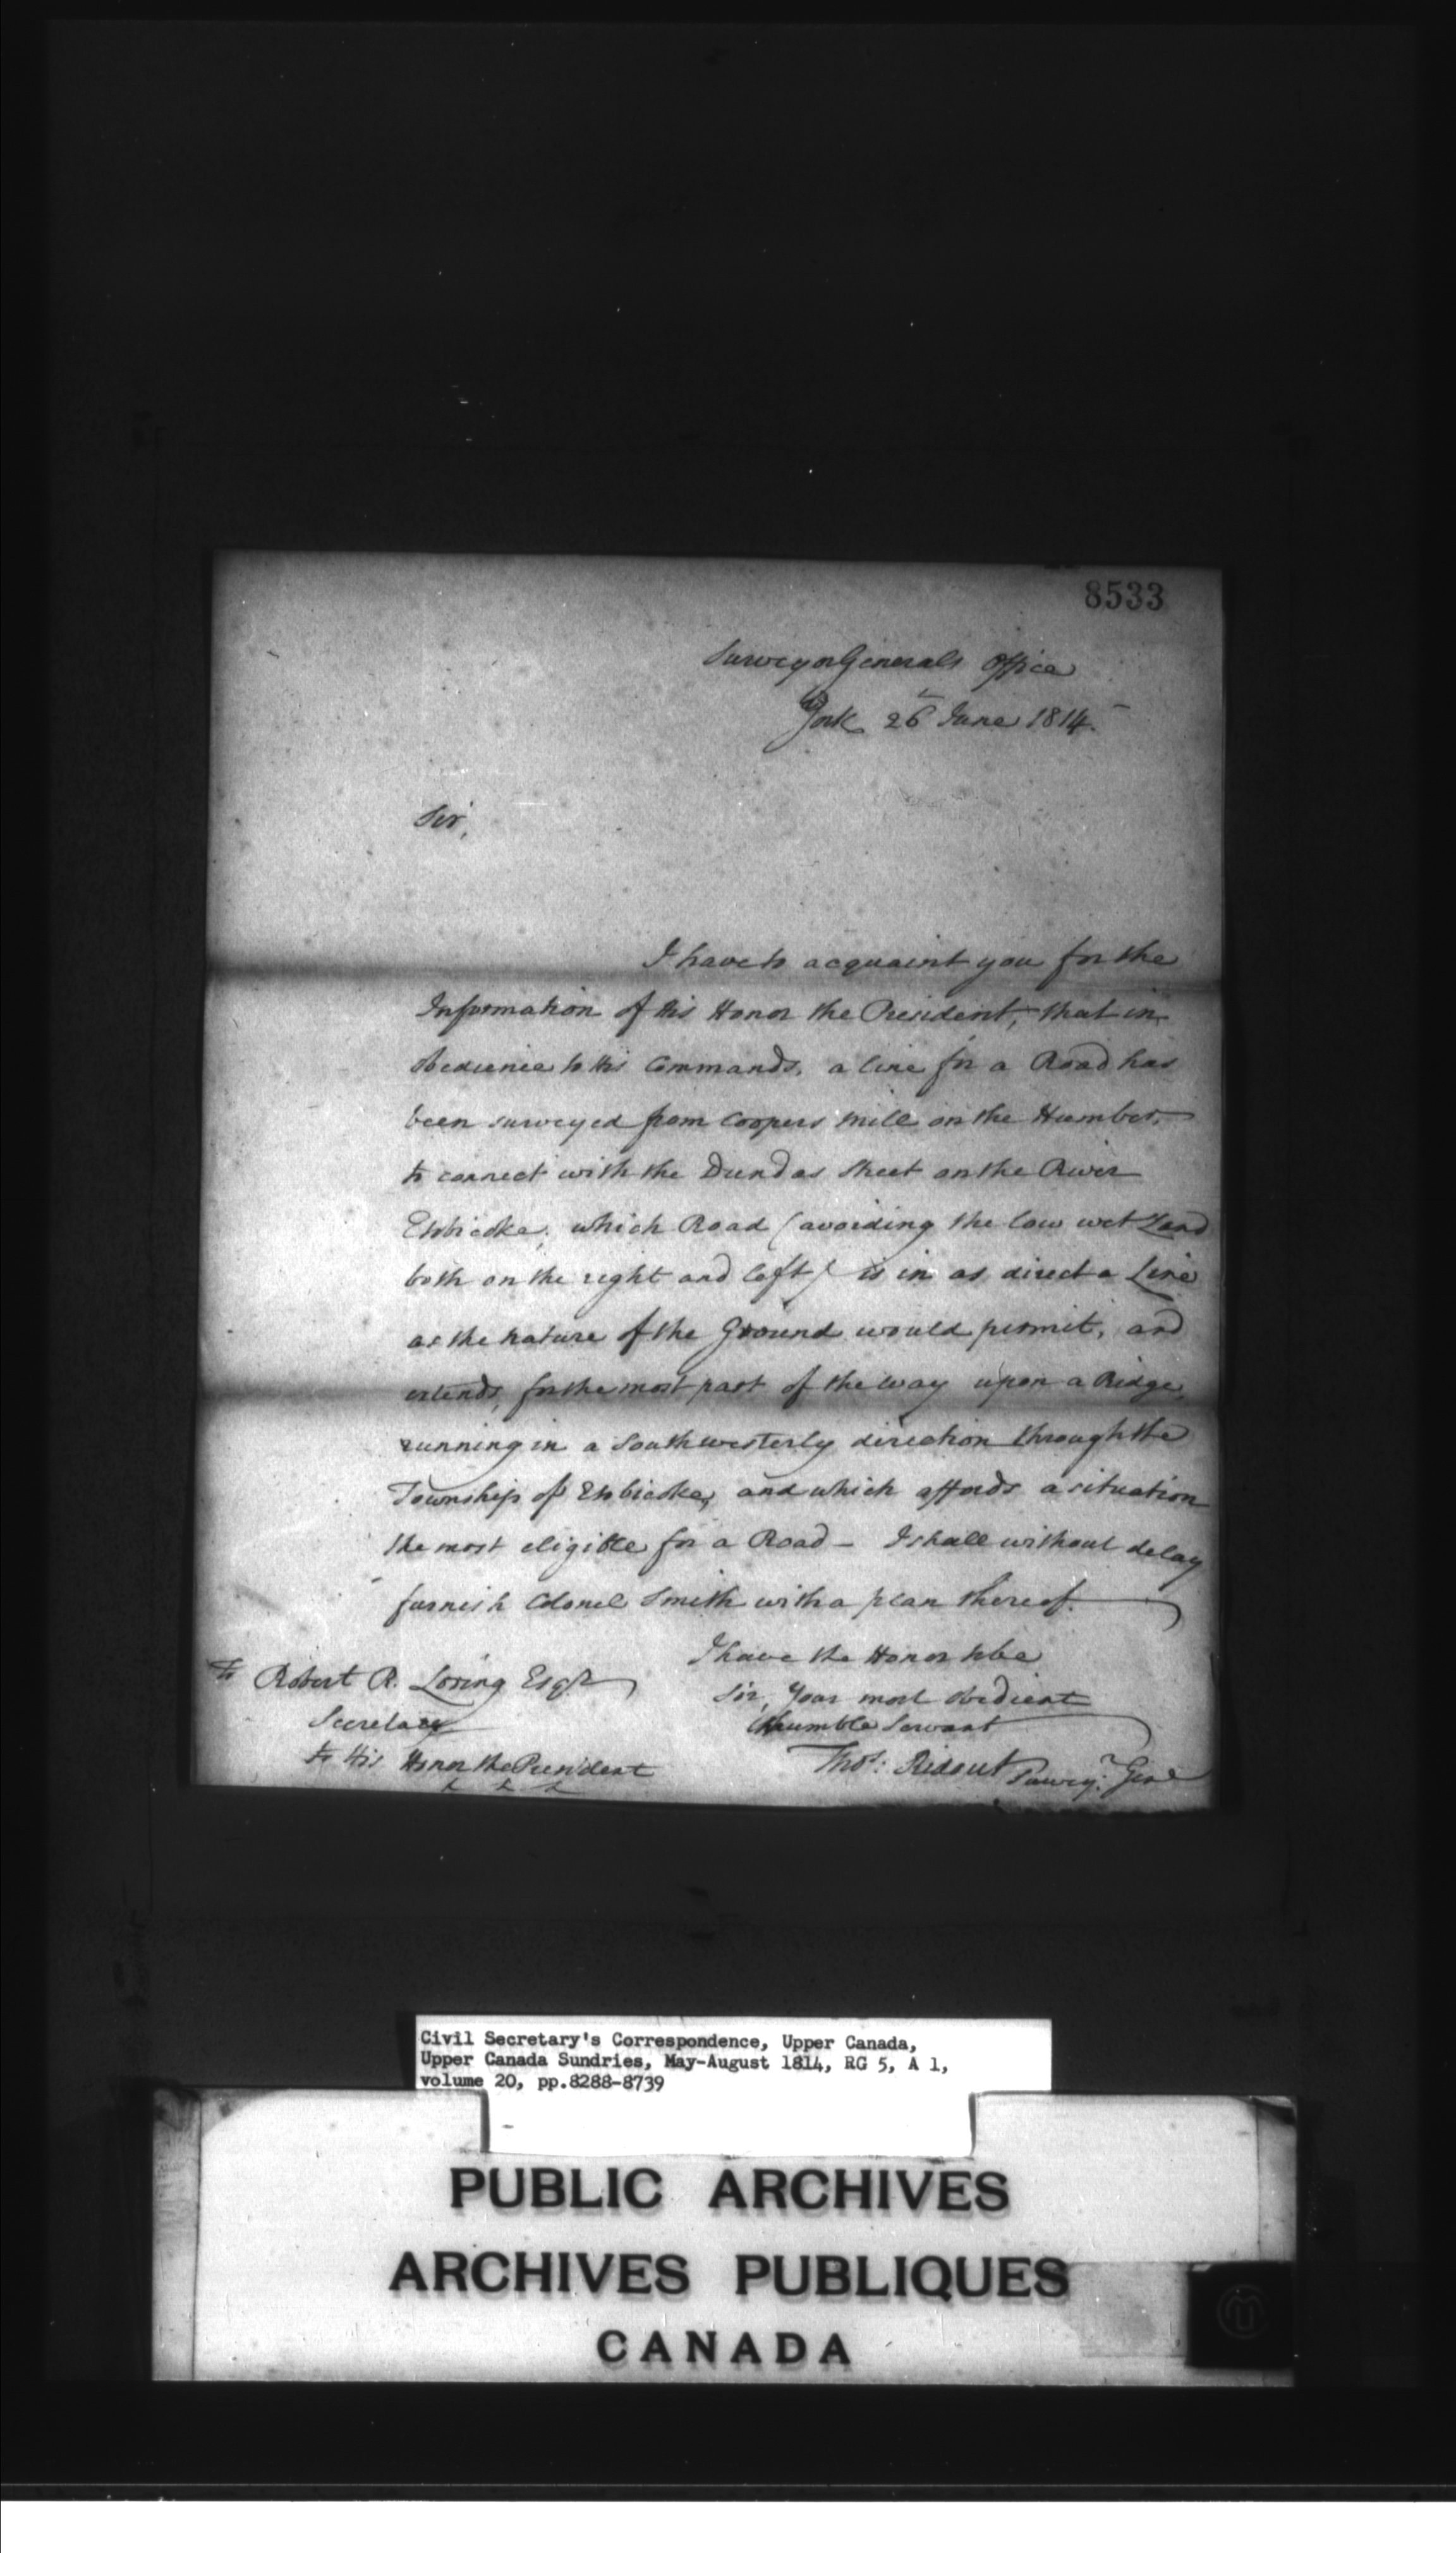 8533
Surveyor Generals Office
York 26 June 1814.
Sir,
I have to acquaint you for the
Information of His Honor the President, that in
obedience to His Commands, a line for a Road has
been surveyed from Coopers Mill on the Humber,
to connect with the Dundas Street on the River
Etobicoke, which Road (avoiding the low wet Land
both on the right and left) is in as direct a Line
as the nature of the Ground would permit, and
extends, for the most part of the way upon a Ridge,
running in a Southwesterly direction through the
Township of Etobicoke, and which affords a situation
the most eligible for a Road - I shall without delay
furnish Colonel Smith with a plan thereof.
I have the Honor to be
Sir, Your most obedient
humble Servant
Thos: Ridout Survey: Genl
To Robert R. Loring Esqr
Secretary
to His Honor the President
Civil Secretary's Correspondence, Upper Canada,
Upper Canada Sundries, May-August 1814, RG 5, A 1,
volume 20, pp.8288-8739
PUBLIC ARCHIVES
ARCHIVES PUBLIQUES
CANADA